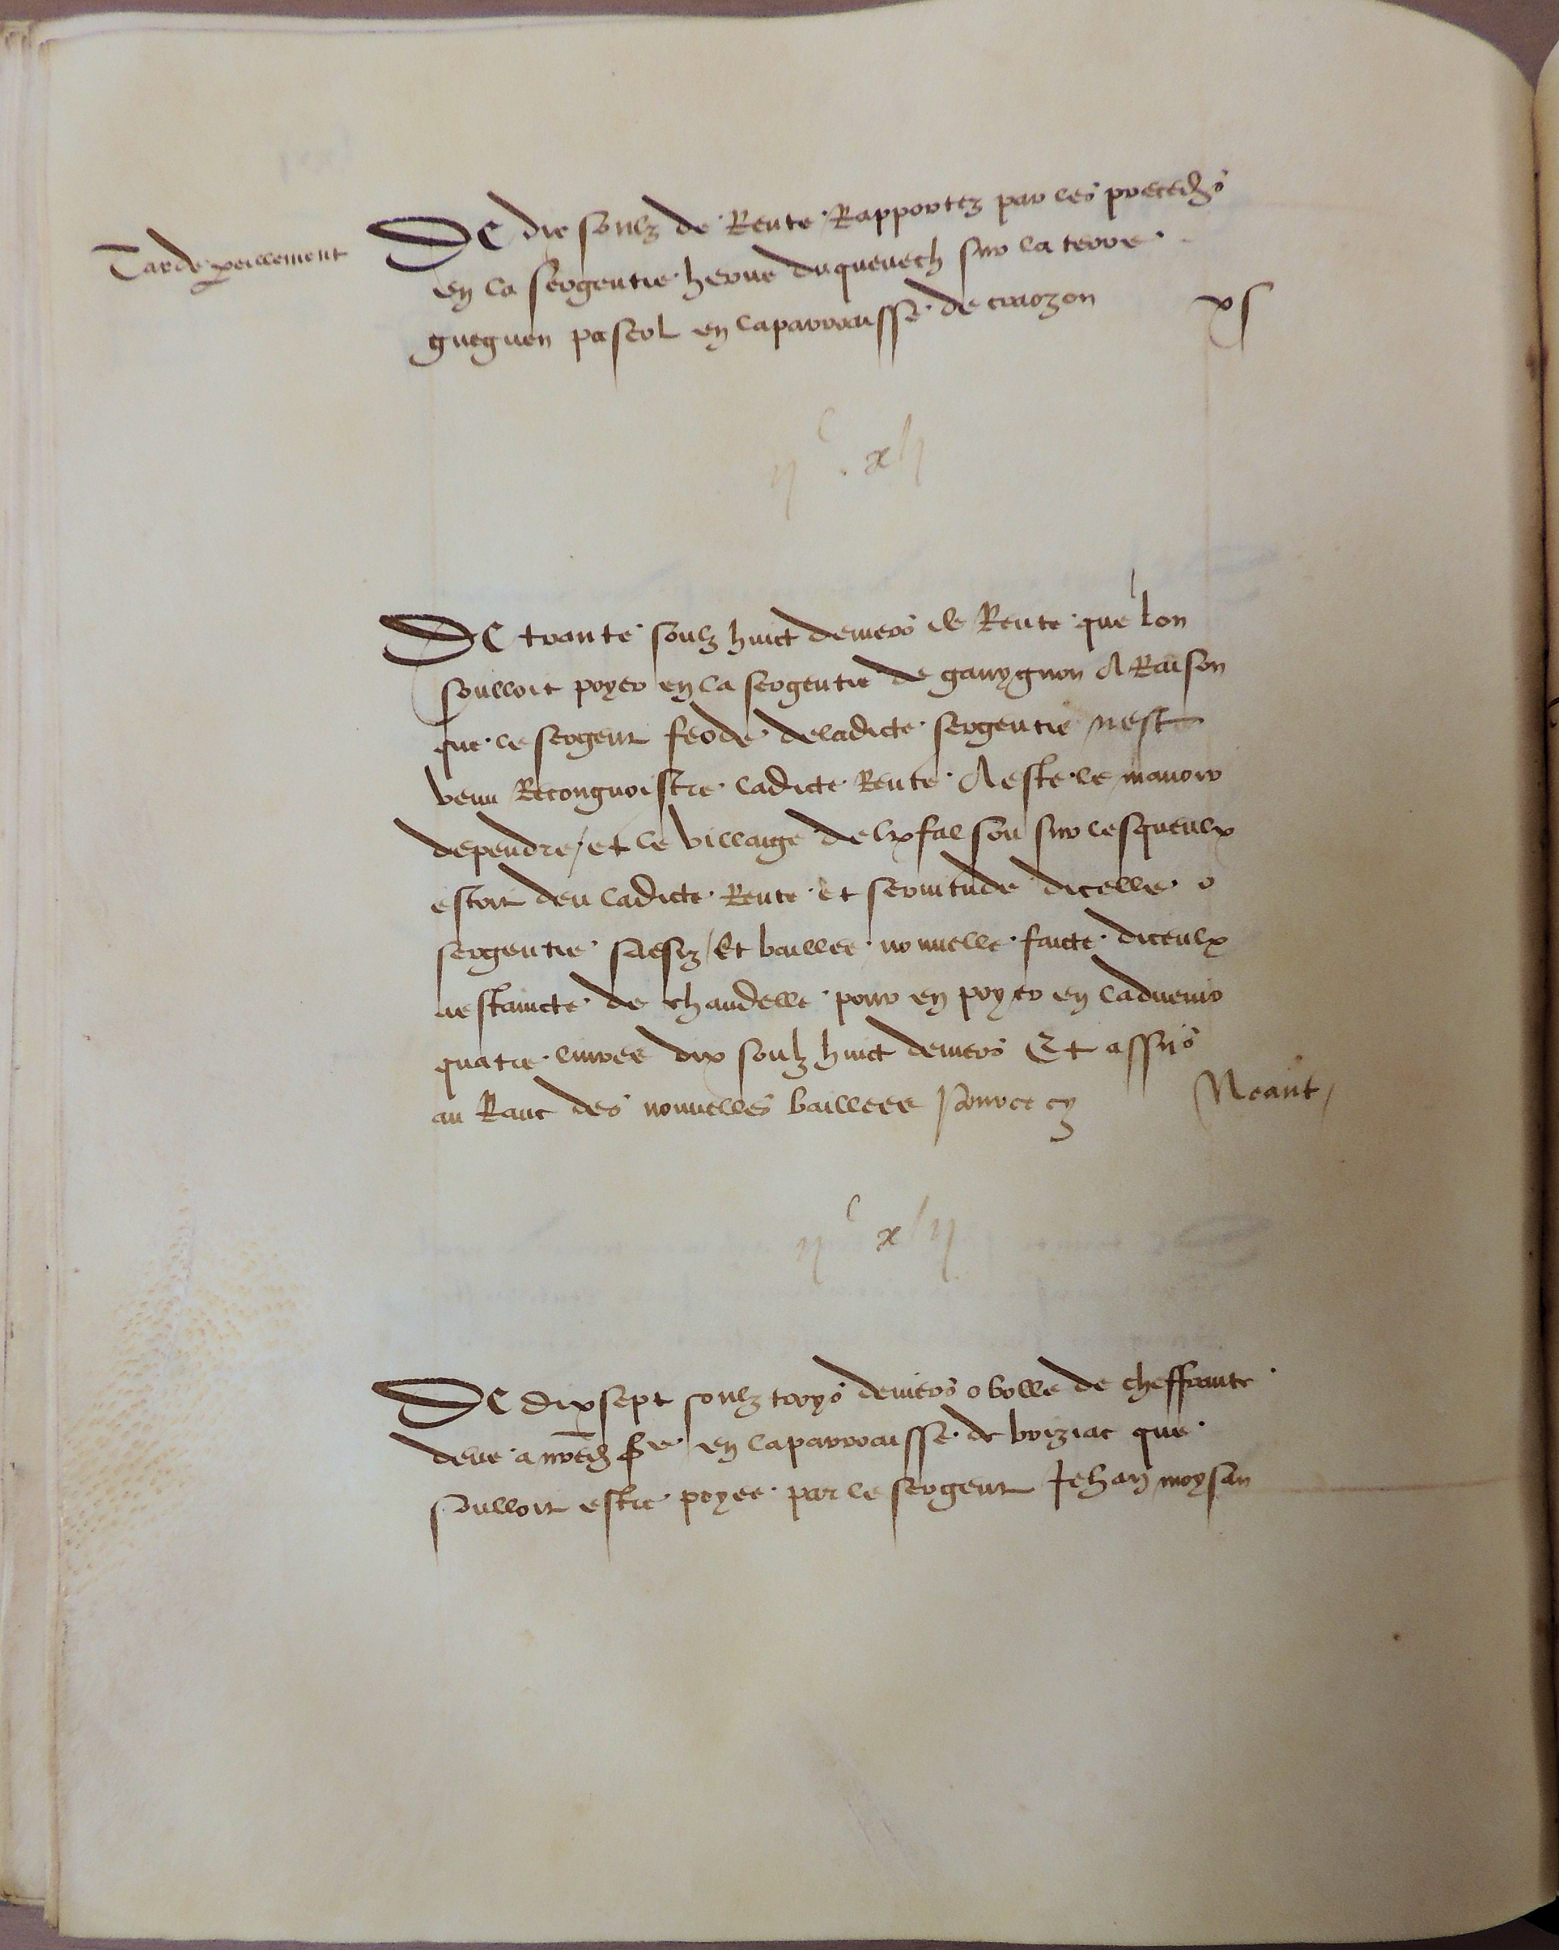 Tarde peillement
De dix soulz de Rente Rapportez par les preced~s
en la sergentie herve duquenech sur la terre
gueguen pascol en la parroaisse de craozon xs
De trante soulz huict deniers de Rente que lon
soulloit poyer en la sergentie de A Raison
que le sergent feodé de ladicte sergentie nest
venu Recongnoistre ladicte Rente A esté le manoir
dependre / et le villaige de sur lesqueulx
estoit deu ladicte Rente et servitude dicelle
sergentie saesiz / Et baillee nouvelle faicte diceulx
a estaincte de chandelle pour en poyer en ladvenir
quatre livres dix soulz huict deniers Et assis
au Ranc des nouvelles baillees pource cy Neant /
De dix sept soulz troys deniers obolle de cheffrante
deue a en la parroaisse de briziac que
soulloit estre poyee par le sergent Jehan moysan